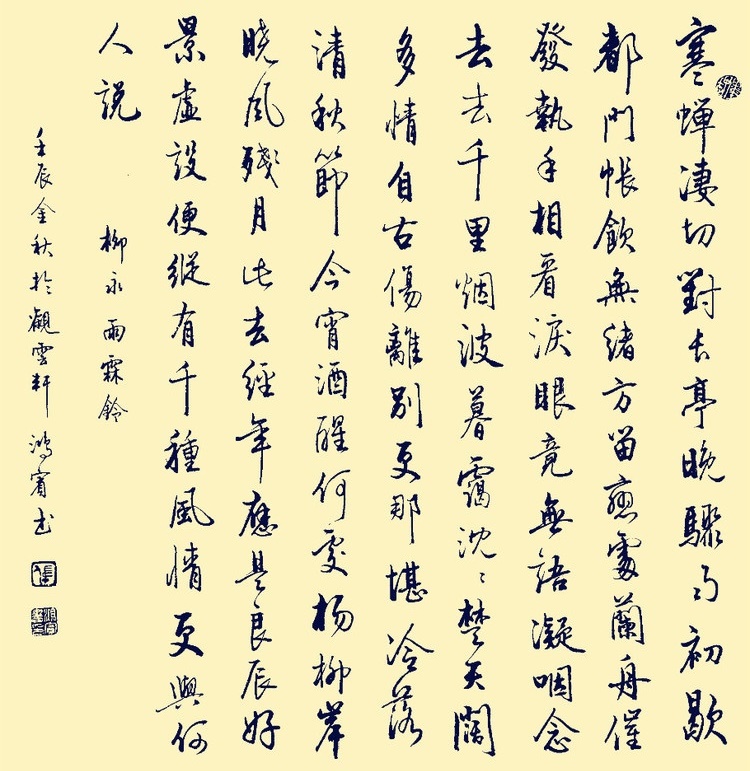 寒蟬淒切對長亭晚驟雨初歇
都門帳飲無緒方留戀處蘭舟催
發執手相看淚眼竟無語凝咽念
去去千里烟波暮靄沈〻楚天闊
多情自古傷離別更那堪冷落
清秋節今宵酒醒何處楊柳岸
曉風殘月此去經年應是良辰好
景虛設便縱有千種風情更與何
人説
柳永雨霖鈴
壬辰金秋於觀雲軒鴻賓书